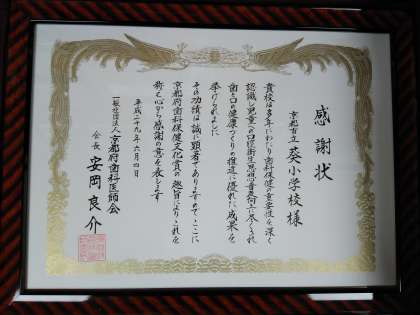 感謝状
京都市立 葵小学校 様
貴校は多年にわたり歯科保健の重要性を深く
認識し児童への口腔衛生思想普及向上に尽くされ
歯と口の健康づくりの推進に優れた成果を
挙げられました
その功績は誠に顕著でありますので、ここに
京都府歯科保健文化賞の趣旨によりこれを
称え心から感謝の意を表します
平成二十九年六月四日
一般社団法人 京都府歯科医師会
会長 安岡良介